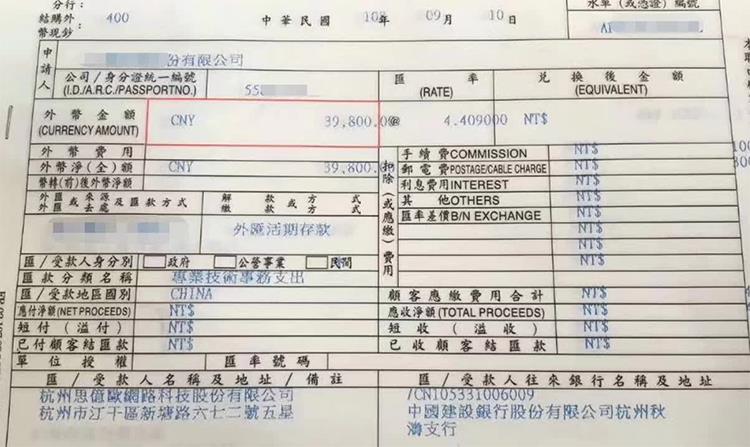 分行:
結購外: 400
幣現鈔:
中華民國 108年 09月 10日
水單(或憑證)編號
申請人
份有限公司
公司/身分證統一編號
(I.D./A.R.C./PASSPORTNO.)
55
匯 率
(RATE)
兌換後金額
(EQUIVALENT)
外幣金額
(CURRENCY AMOUNT)
CNY 39,800.0@ 4.409000 NT$
外幣費用
外幣淨(金)額 CNY 39,800.0
幣轉(前)後外幣淨額
扣除(或應繳)費用
手續費COMMISSION NT$
郵電費POSTAGE/CABLE CHARGE NT$
利息費用INTEREST NT$
其 他OTHERS NT$
匯率差價B/N EXCHANGE NT$
NT$
外匯或來源及匯款方式
外匯或去處
解 款 或 方 式
繳 款 方 式
外匯活期存款
匯/受款人身分別 政府 公營事業 民間
匯款分類名稱 專業技術事務支出
匯/受款地區國別 CHINA
顧客應繳費用合計 NT$
應付淨額(NET PROCEEDS) NT$
應收淨額(TOTAL PROCEEDS) NT$
短付(溢付) NT$
短收(溢收) NT$
已付顧客結匯款 NT$
已收顧客結匯款 NT$
單位授權
匯率號碼
匯/受款人名稱及地址/備註
匯/受款人往來銀行名稱及地址
杭州思億歐網路科技股份有限公司
杭州市江干區新塘路六七二號五星
/CN105331006009
中國建設銀行股份有限公司杭州秋
濤支行